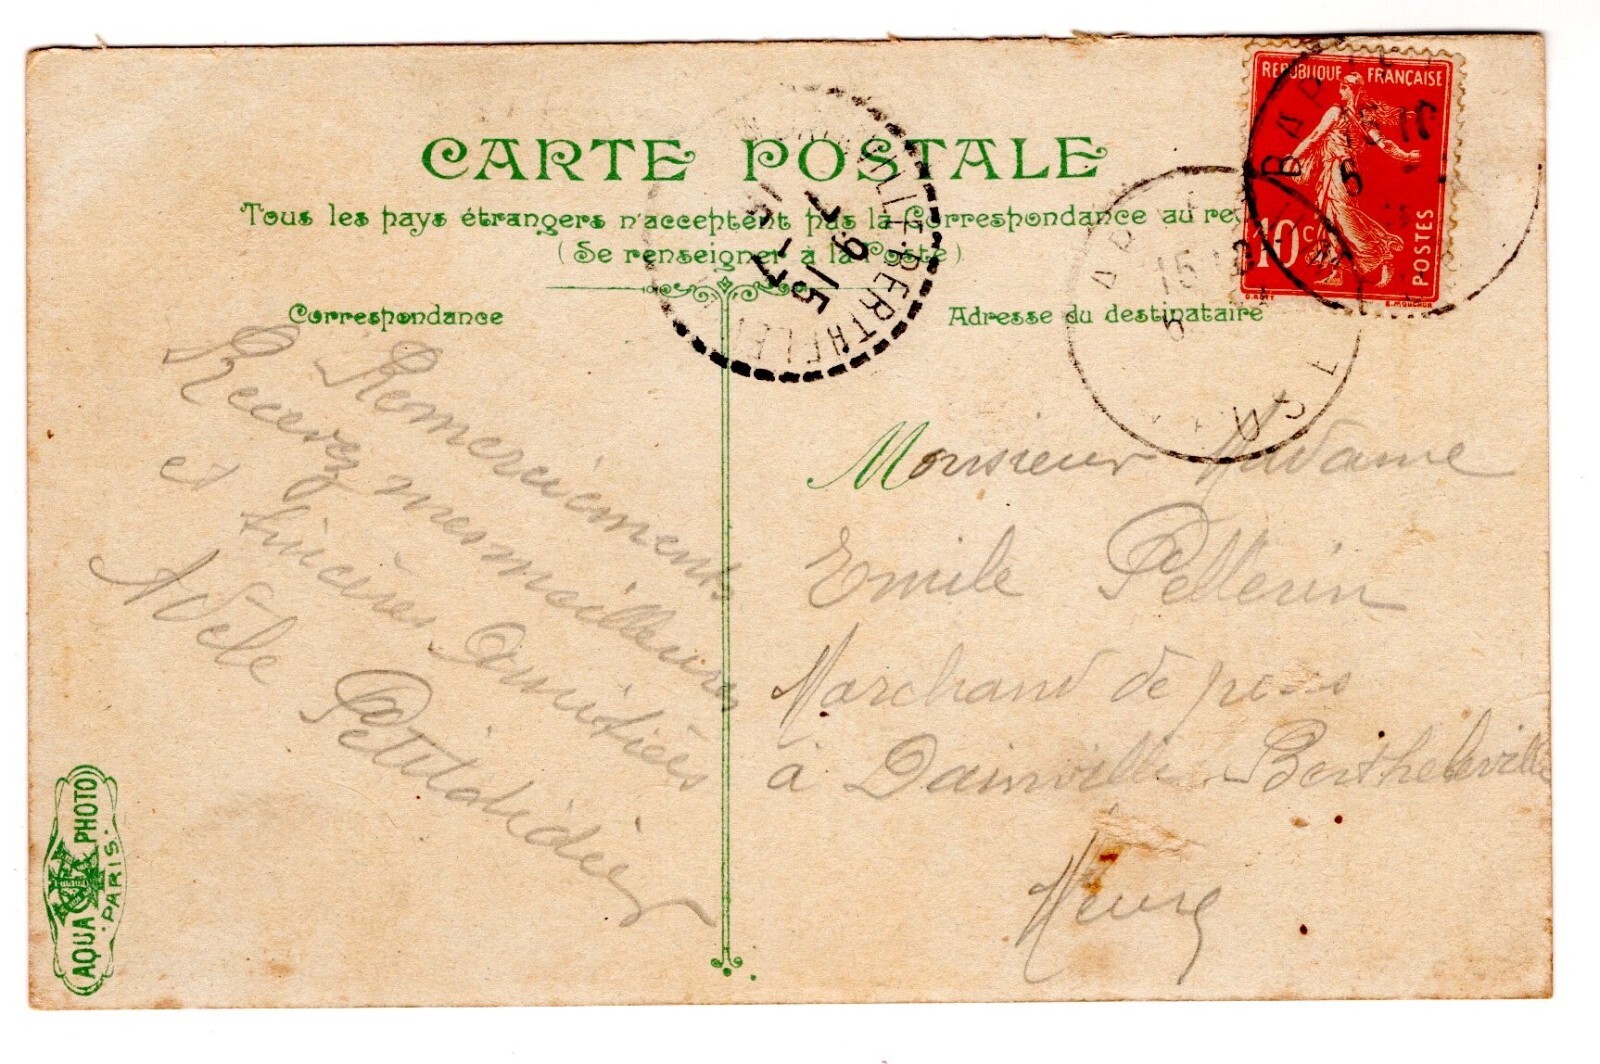 CARTE POSTALE
Tous les pays étrangers n'acceptent pas la Correspondance au re
(Se renseigner à la Poste)
Correspondance
Adresse du destinataire
REPUBLIQUE FRANÇAISE
10 c
POSTES
Remerciements
Recevez mes meilleurs
et sincères Amitiées
Adèle Petitdidier
Monsieur Madame
Emile Pellerin
Marchand de
à Dainville Bertheleville
Meuse
AQUA PHOTO
PARIS